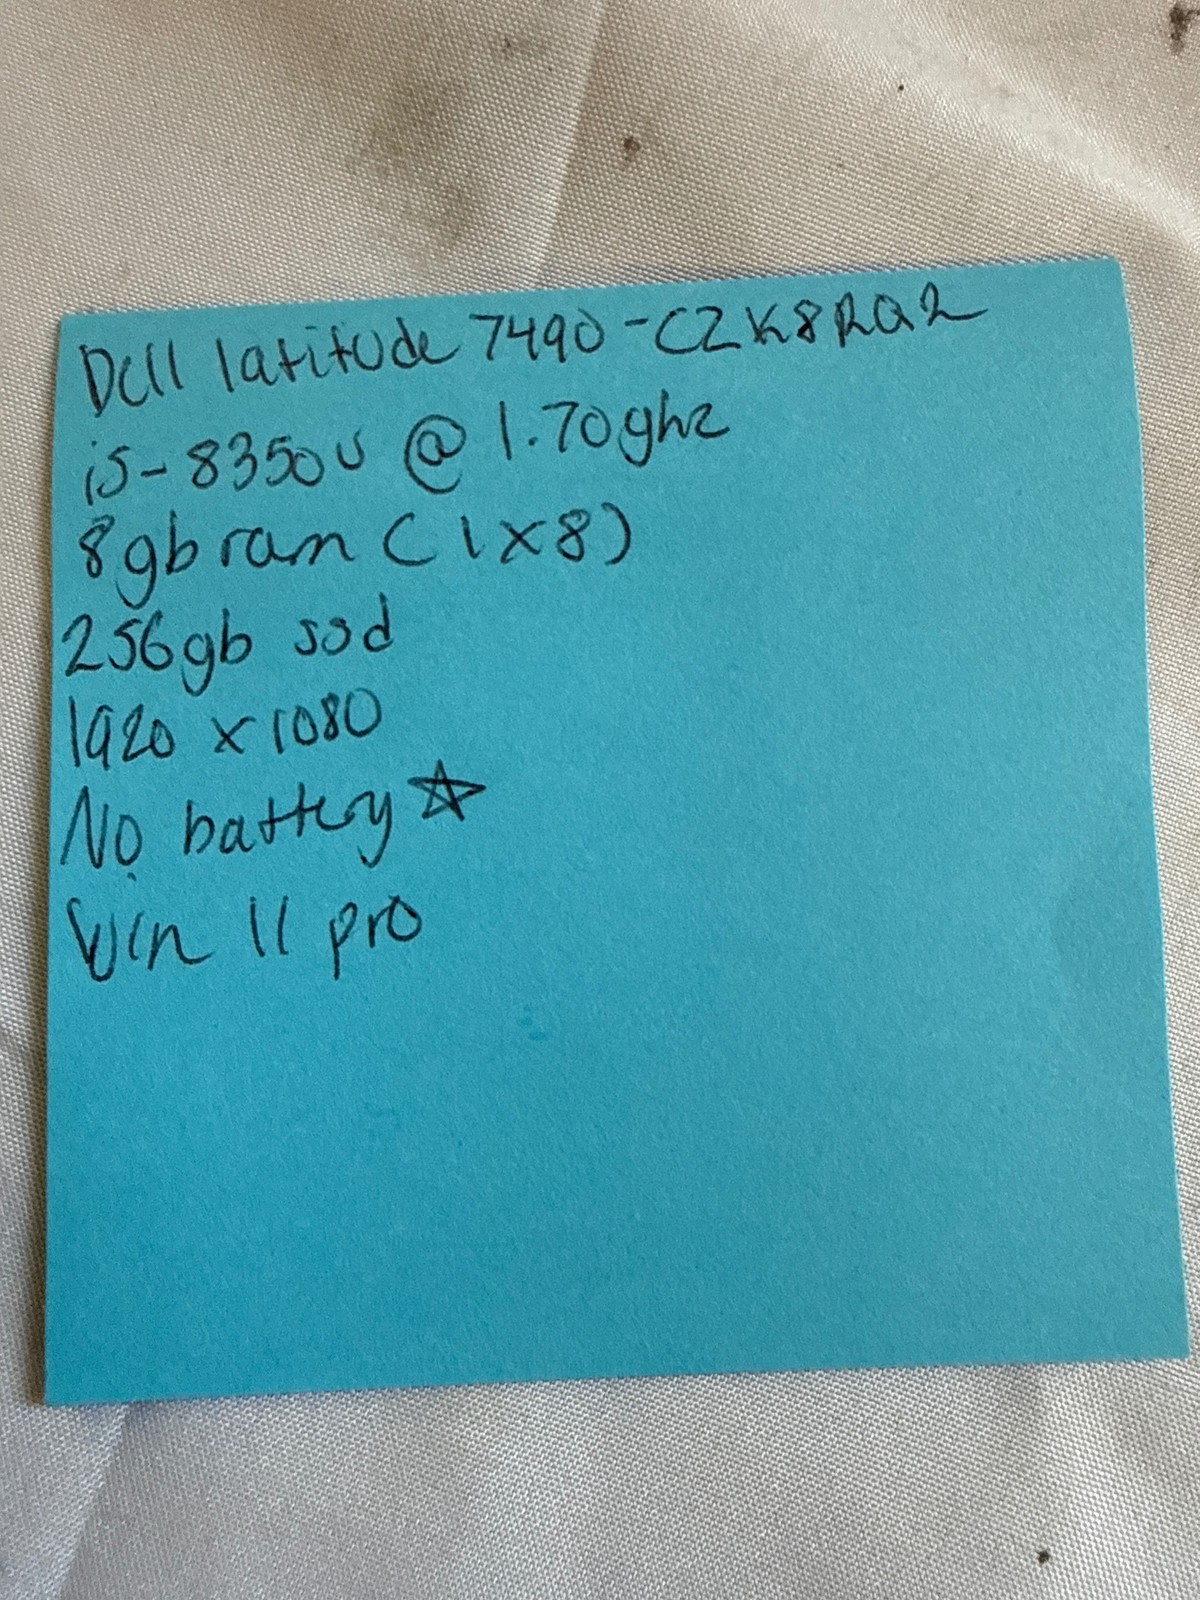 Dell latitude 7490 - CZK8RQ2
i5-8350U @ 1.70ghz
8gb ram (1x8)
256gb ssd
1920 x 1080
No battery ☆
Win 11 pro